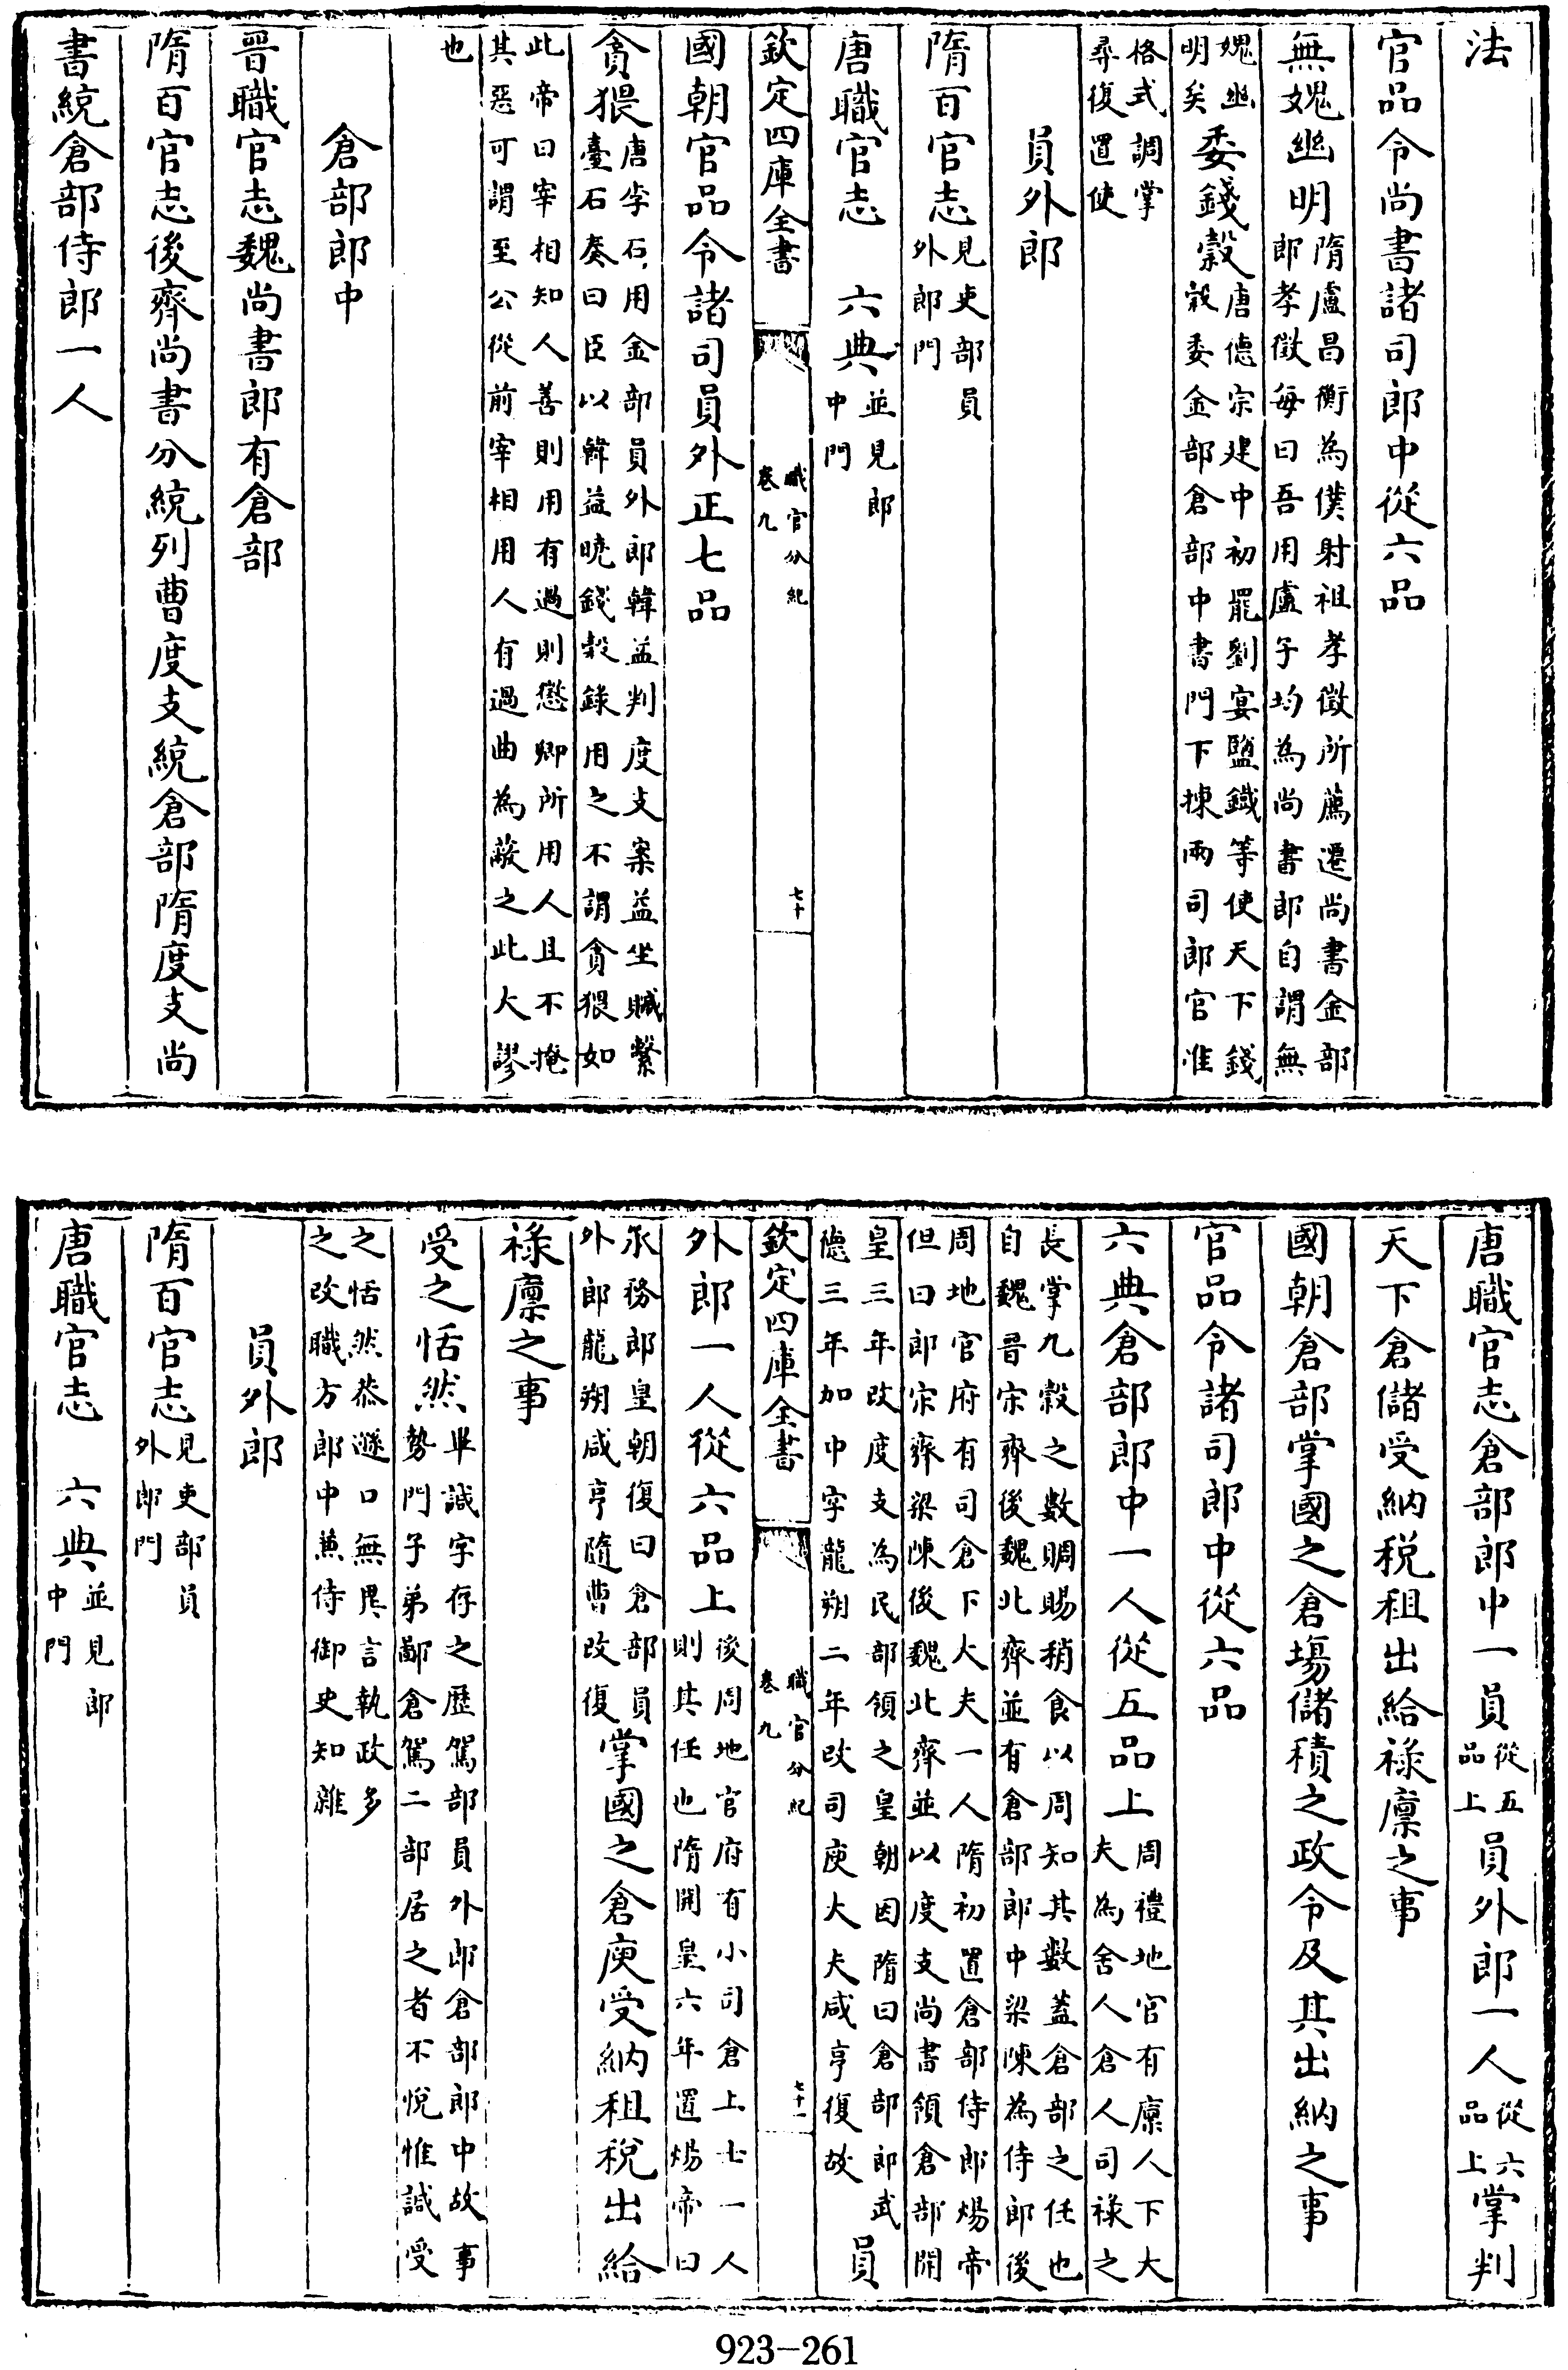 法
官品令尚書諸司郎中從六品
無媿幽明隋盧昌衡為僕射祖孝徵所薦遷尚書金部
郎孝徵每曰吾用盧子均為尚書郎自謂無
媿幽
明矣委錢穀唐德宗建中初罷劉宴鹽鐡等使天下錢
穀委金部倉部中書門下揀兩司郎官准
格式調掌
尋復置使
員外郎
隋百官志見吏部員
外郎門
唐職官志 六典並見郎
中門
欽定四庫全書 職官分紀
卷九 七十
國朝官品令諸司員外正七品
貪猥唐李石用金部員外郎韓益判度支案益坐贓繫
臺石奏曰臣以韓益曉錢穀錄用之不謂貪猥如
此帝曰宰相知人善則用有過則懲卿所用人且不掩
其惡可謂至公從前宰相用人有過曲為蔽之此大謬
也
倉部郎中
晉職官志魏尚書郎有倉部
隋百官志後齊尚書分統列曹度支統倉部隋度支尚
書統倉部侍郎一人
唐職官志倉部郎中一員從五
品上員外郎一人從六
品上掌判
天下倉儲受納稅租出給祿廩之事
國朝倉部掌國之倉塲儲積之政令及其出納之事
官品令諸司郎中從六品
六典倉部郎中一人從五品上周禮地官有廪人下大
夫為舍人倉人司祿之
長掌九穀之數賙賜稍食以周知其數蓋倉部之任也
自魏晉宋齊後魏北齊並有倉部郎中梁陳為侍郎後
周地官府有司倉下大夫一人隋初置倉部侍郎煬帝
但曰郎宋齊梁陳後魏北齊並以度支尚書領倉部開
皇三年改度支為民部領之皇朝因隋曰倉部郎武
德三年加中字龍朔二年改司庾大夫咸亨復故員
欽定四庫全書 職官分紀
卷九 七十一
外郎一人從六品上後周地官府有小司倉上士一人
則其任也隋開皇六年置煬帝曰
承務郎皇朝復曰倉部員
外郎龍朔咸亨隨曹改復掌國之倉庾受納租稅出給
祿廪之事
受之恬然畢諴字存之歷駕部員外郎倉部郎中故事
勢門子弟鄙倉駕二部居之者不悅惟諴受
之恬然恭遜口無異言執政多
之改職方郎中兼侍御史知雜
員外郎
隋百官志見吏部員
外郎門
唐職官志 六典並見郎
中門
923-261